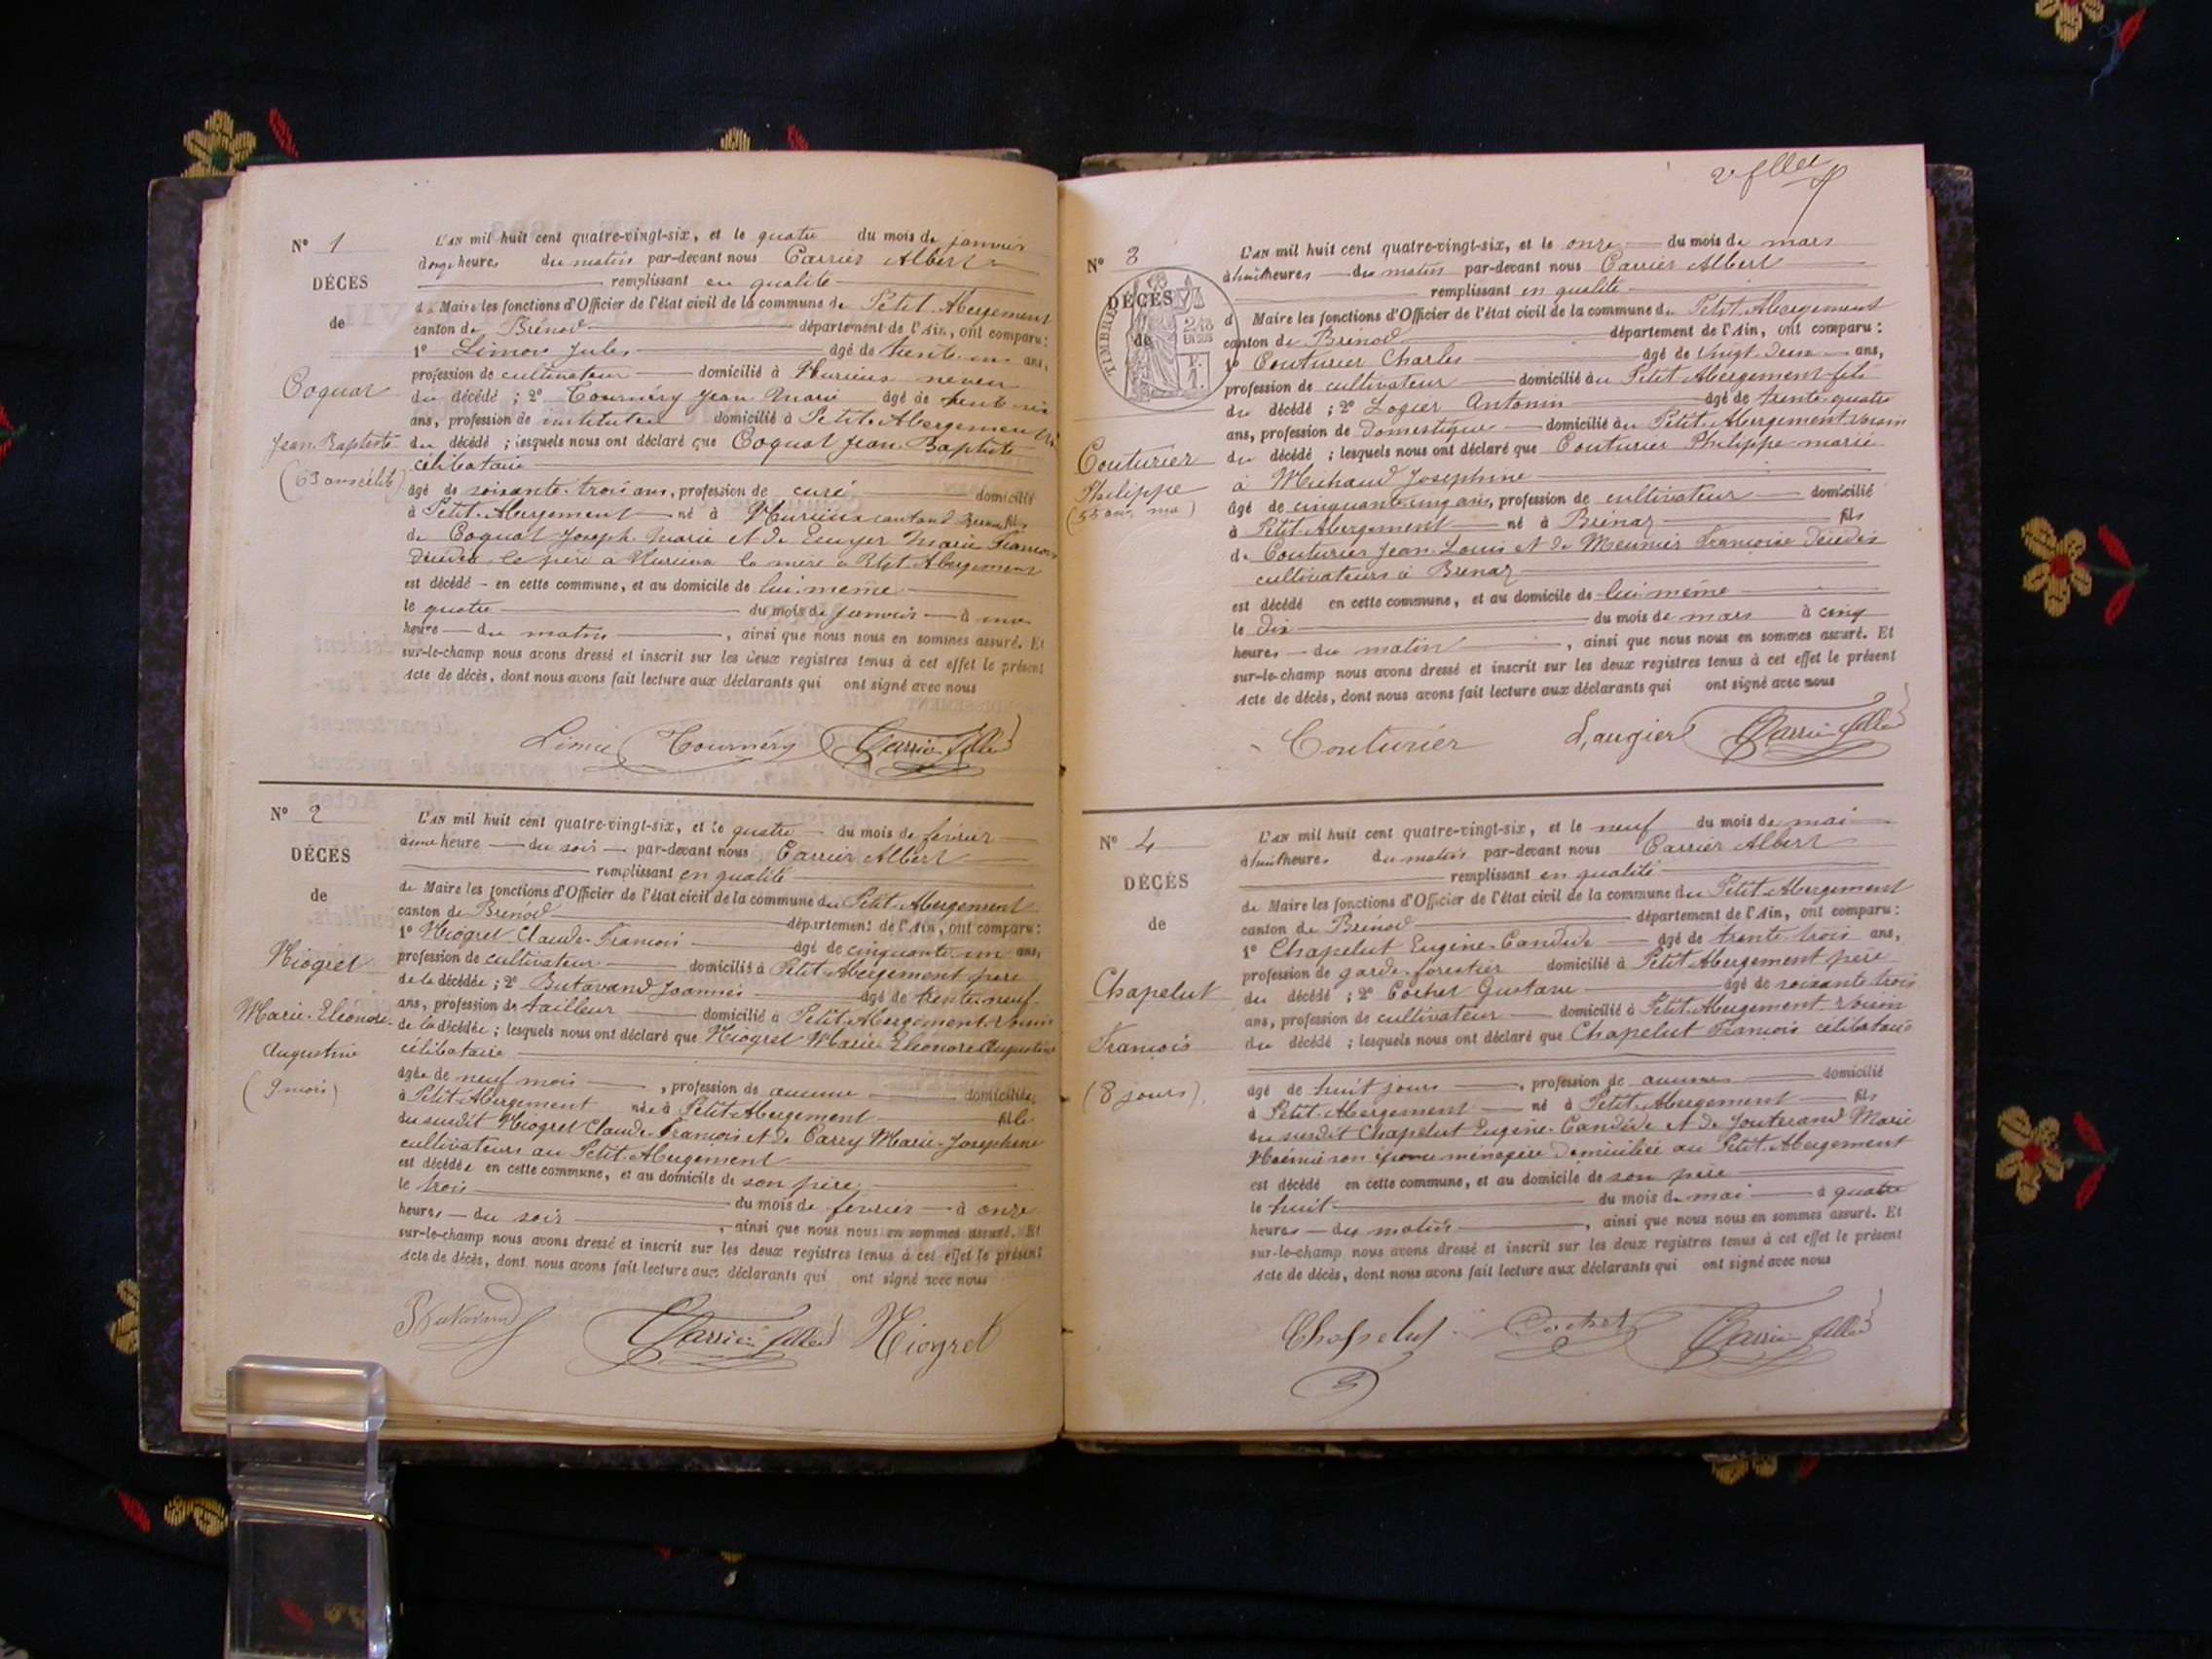 N° 1
DÉCÈS
de
Coquat
Jean Baptiste
(63 ans célib)
L'AN mil huit cent quatre-vingt-six, et le quatre du mois de janvier
heures du matin par-devant nous Carrier Albert
remplissant en qualité
de Maire les fonctions d'Officier de l'état civil de la commune de Petit Abergement
canton de Brénod département de l'Ain, ont comparu :
1° Limon Jules âgé de trente un ans,
profession de cultivateur domicilié à neveu
du décédé ; 2° Tournéry Jean Marie âgé de trente six
ans, profession de instituteur domicilié à Petit Abergement
du décédé ; lesquels nous ont déclaré que Coquat Jean Baptiste
célibataire
âgé de soixante trois ans, profession de curé domicilié
à Petit Abergement né à fils
de Coquat Joseph Marie et de Marie
décédés le père à la mère à Petit Abergement
est décédé en cette commune, et au domicile de lui même
le quatre du mois de janvier à une
heure du matin, ainsi que nous nous en sommes assuré. Et
sur-le-champ nous avons dressé et inscrit sur les deux registres tenus à cet effet le présent
Acte de décès, dont nous avons fait lecture aux déclarants qui ont signé avec nous
Tournéry Carrier Albert
N° 2
DÉCÈS
de
Hiogret
Marie-Eléonore
Augustine
(9 mois)
L'AN mil huit cent quatre-vingt-six, et le quatre du mois de février
à une heure du soir par-devant nous Carrier Albert
remplissant en qualité
de Maire les fonctions d'Officier de l'état civil de la commune du Petit-Abergement
canton de Brénod département de l'Ain, ont comparu :
1° Hiogret Claude-François âgé de cinquante un ans,
profession de cultivateur domicilié à Petit Abergement père
de la décédée ; 2° Butavand Joannès âgé de trente-neuf
ans, profession de tailleur domicilié à Petit Abergement voisin
de la décédée ; lesquels nous ont déclaré que Hiogret Marie Eléonore Augustine
célibataire
âgée de neuf mois, profession de aucune domiciliée
à Petit Abergement née à Petit Abergement fille
du susdit Hiogret Claude-François et de Carry Marie-Josephine
cultivateurs au Petit-Abergement
est décédée en cette commune, et au domicile de son père
le trois du mois de février à onze
heures du soir, ainsi que nous nous en sommes assuré. Et
sur-le-champ nous avons dressé et inscrit sur les deux registres tenus à cet effet le présent
Acte de décès, dont nous avons fait lecture aux déclarants qui ont signé avec nous
Butavand Carrier Albert Hiogret
N° 3
DÉCÈS
de
TIMBRE
Couturier
Philippe
(55 ans ma)
L'AN mil huit cent quatre-vingt-six, et le onze du mois de mars
à huit heures du matin par-devant nous Carrier Albert
remplissant en qualité
d Maire les fonctions d'Officier de l'état civil de la commune du Petit-Abergement
canton de Brénod département de l'Ain, ont comparu :
1° Couturier Charles âgé de vingt deux ans,
profession de cultivateur domicilié au Petit Abergement fils
du décédé ; 2° Logier Antonin âgé de trente-quatre
ans, profession de domestique domicilié au Petit Abergement voisin
du décédé ; lesquels nous ont déclaré que Couturier Philippe marié
à Michaud Josephine
âgé de cinquante-cinq ans, profession de cultivateur domicilié
à Petit Abergement né à Brénaz fils
de Couturier Jean-Louis et de Meunier Françoise décédés
cultivateurs à Brénaz
est décédé en cette commune, et au domicile de lui même
le dix du mois de mars à cinq
heures du matin, ainsi que nous nous en sommes assuré. Et
sur-le-champ nous avons dressé et inscrit sur les deux registres tenus à cet effet le présent
Acte de décès, dont nous avons fait lecture aux déclarants qui ont signé avec nous
Couturier Laugier Carrier Albert
N° 4
DÉCÈS
de
Chapelut
François
(8 jours).
L'AN mil huit cent quatre-vingt-six, et le neuf du mois de mai
à huit heures du matin par-devant nous Carrier Albert
remplissant en qualité
de Maire les fonctions d'Officier de l'état civil de la commune du Petit-Abergement
canton de Brénod département de l'Ain, ont comparu :
1° Chapelut Eugène-Candide âgé de trente-trois ans,
profession de garde-forestier domicilié à Petit Abergement père
du décédé ; 2° Cochet Gustave âgé de soixante trois
ans, profession de cultivateur domicilié à Petit Abergement voisin
du décédé ; lesquels nous ont déclaré que Chapelut François célibataire
âgé de huit jours, profession de aucune domicilié
à Petit Abergement né à Petit-Abergement fils
du susdit Chapelut Eugène-Candide et de Jouterand Marie
Noémie son épouse ménagère domiciliée au Petit-Abergement
est décédé en cette commune, et au domicile de son père
le huit du mois de mai à quatre
heures du matin, ainsi que nous nous en sommes assuré. Et
sur-le-champ nous avons dressé et inscrit sur les deux registres tenus à cet effet le présent
Acte de décès, dont nous avons fait lecture aux déclarants qui ont signé avec nous
Chapelut Cochet Carrier Albert